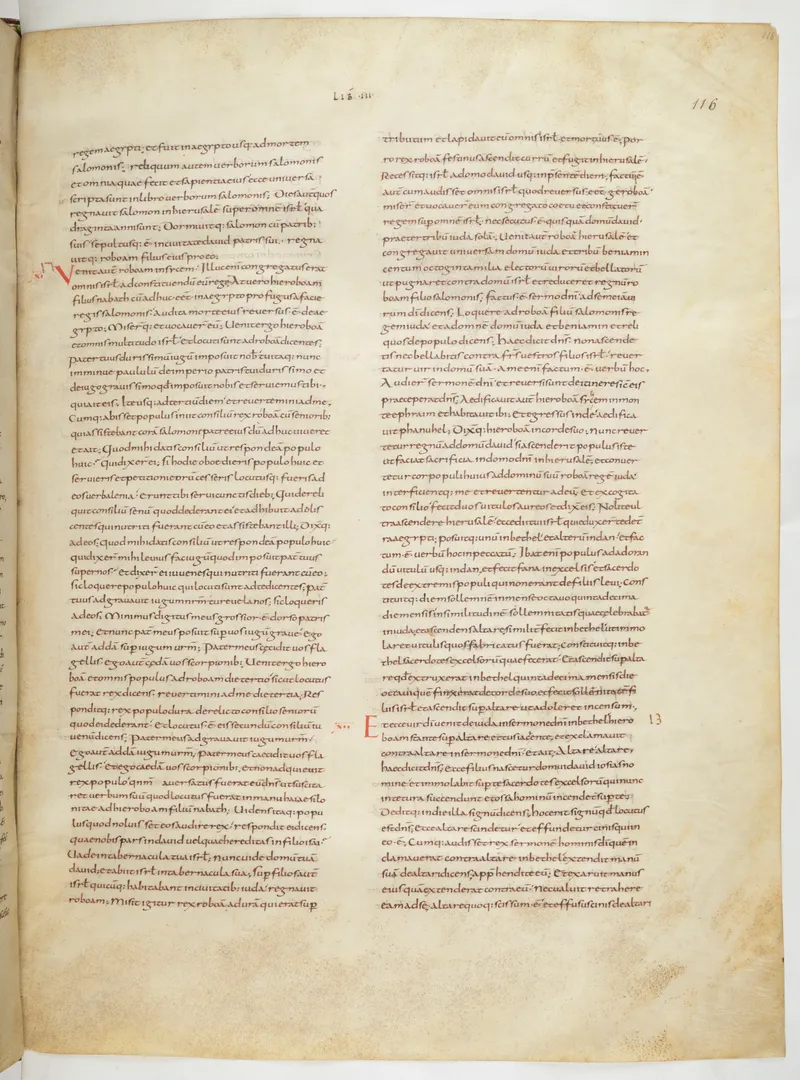 LIB̄ ·III·
116
regem aegypti; et fuit in aegypto usq; ad mortem
salomonis; reliquum autem uerborum salomonis
et omnia quae fecit et sapientia eius ecce uniuersa
scripta sunt in libro uerborum salomonis; Dies aut̄ quos
regnauit salomon in hierusalē super omnē isrl̄ qua
draginta anni sunt; Dormiuitq; salomon cū patrib;
suis sepultusq; ē in ciuitate dauid patris sui. regna
uitq; roboam filius eius pro eo;
Venit aut̄ roboam in sycem; Illuc enī congregatus erat
omnis isrl̄ ad constituendū eū regē At uero hieroboam
filius nabath cū adhuc eēt in aegypto profugus a facie
regis salomonis; Audita morte eius reuersus ē de ae
gypto; Miserq; et uocauer eū; Uenit ergo hieroboā
et omnis multitudo isrl̄ et locuti sunt ad roboā dicentes;
Pater tuus durissimū iugū imposuit nob̄ tu itaq; nunc
imminue paululū de imperio patris tui durissimo et
de iugo grauissimo qd̄ imposuit nobis et seruiemus tibi.
qui ait eis; Ite usq; ad tertiū diem et reuertimini ad me.
Cumq; abisset populus iniit consiliū rex roboā cū seniorib;
qui assistebant corā salomon patre eius dū adhuc uiueret
et ait; Quod mihi datis consiliū ut respondeā populo
huic; Qui dixer ei; si hodie oboedieris populo huic et
seruieris et petitioni eorū cesseris locutusq; fueris ad
eos uerba lenia. erunt tibi serui cunctis dieb; Qui dereli
quit consiliū senū quod dederant ei et adhibuit adoles
centes qui nutriti fuerant cū eo et assistebant illi; Dixitq;
ad eos; quod mihi datis consiliū ut respondeā populo huic
qui dixer mihi leuius fac iugū quod imposuit pat̄ tuus
super nos; et dixer ei iuuenes qui nutriti fuerant cū eo;
sic loquere populo huic qui locuti sunt ad te dicentes; pat̄
tuus adgrauauit iugum nrm̄ tu releua nos; sic loqueris
ad eos; Minimus digitus meus grossior ē dorso patris
mei; et nunc pat̄ meus posuit sup̄ uos iugū graue. ego
aut̄ addā sup̄ iugum urm̄; Pater meus cecidit uos fla
gellis. ego aut̄ cędā uos scorpionib; Uenit ergo hiero
boā et omnis populus ad roboam die tertio sicut locutus
fuerat rex dicens; reuertimini ad me die tertia; Res
ponditq; rex populo dura derelicto consilio seniorū
quod ei dederant. et locutus ē eis secundū consiliū iu
uenū dicens; Pater meus adgrauauit iugum urm̄
ego aut̄ addā iugum urm̄; pater meus caecidit uos fla
gellis. et ego caedā uos scorpionib; et non adquieuit
rex populo qnm̄ auersatus fuerat eū dn̄s ut suscita
ret uerbum suū quod locutus fuerat in manu haiae silo
nitae ad hieroboam filiū nabath; Uidens itaq; popu
lus quod noluisset eos audire rex. respondit ei dicens;
quae nobis pars in dauid uel quae hereditas in filio isai.
Uade in tabernacula tua isrl̄; nunc uide domū tuā
dauid; et abiit isrl̄ in tabernacula sua; sup̄ filios aut̄
isrl̄ quicūq; habitabant in ciuitatib; iuda. regnauit
roboam; Misit igitur rex roboā adurā qui erat sup̄
tributum et lapidauit eū omnis isrl̄ et mortuus ē; por
ro rex roboā festinus ascendit currū et fugit in hierusalē.
Recessitq; isrl̄ a domo dauid usq; in p̄sentē diem; factū ē
aut̄ cum audisset omnis isrl̄ quod reuersus eēt geroboā.
miser et uocauer eum congregato coetu et constituer
regem sup̄ omnē isrl̄ nec secutus ē quisquā domū dauid.
praeter tribū iuda solā. Uenit aut̄ roboā hierusalē et
congregauit uniuersam domū iuda et tribū beniamin
centum octoginta milia electorū uirorū et bellatorū
ut pugnaret contra domū isrl̄ et reduceret regnū ro
boam filio salomonis; factus ē sermo dn̄i ad semeiam
rum di dicens; Loquere ad roboā filiū salomonis re
gem iuda et ad omnē domū iuda et beniamin et reli
quos de populo dicens; Haec dicit dn̄s; non ascende
tis nec bellabitis contra fr̄s uestros filios isrl̄. reuer
tatur uir in domū suā. A me enī factum ē uerbū hoc;
Audier sermonē dn̄i et reuersi sunt de itinere sic eis
praeceperat dn̄s; Aedificauit aut̄ hieroboā sycēm in mon
te ephraim et habitauit ibi; Et egressus inde aedifica
uit phanuhel; Dixitq; hieroboā in corde suo; nunc reuer
tetur regnū ad domū dauid si ascenderit populus iste
ut faciat sacrificia in domo dn̄i in hierusalē; et conuer
tetur cor populi huius ad dominū suū roboā regē iuda.
interficientq; me et reuertentur ad eū; Et excogita
to consilio fecit duos uitulos aureos et dix̄ eis; Nolite ul
tra ascendere hierusalē; ecce dii tui isrl̄ qui eduxer te de t̄
ra aegypti; positq; unū in bethel et alterū in dan. et fac
tum ē uerbū hoc in peccatū; Ibat enī populus ad adoran
dū uitulū usq; in dan. et fecit fana in excelsis et sacerdo
tes de extremis populi qui non erant de filiis leui; Cons
tituitq; diem sollemnē in mense octauo quintadecima
die mensis in similitudinē sollemnitatis quae celebrabat̄
in iuda; et ascendens altare similit̄ fecit in bethel ut immo
laret uitulis quos fabricatus fuerat; Constituitq; in be
thel sacerdotes excelsorū quae fecerat. et ascendit sup̄ alta
re qd̄ extruxerat in bethel quintadecima mensis die
octaui que finxerat de corde suo et fecit sollēnitatē fi
liis isrl̄ et ascendit sup̄ altare ut adoleret incensum;
Et ecce uir dī uenit de iuda in sermone dn̄i in bethel hiero
13
boam stante sup̄ altare et tus iacente; et exclamauit
contra altare in sermone dn̄i; et ait; Altare altare,
haec dicit dn̄s; Ecce filius nascetur domui dauid iosias no
mine et immolabit sup̄ te sacerdotes excelsorū qui nunc
in te tura succendunt et ossa hominū incendet sup̄ te;
Deditq; in die illa signū dicens; hoc erit signū qd̄ locutus
est dn̄s; Ecce altare scindetur et effundetur cinis qui in
eo ē; Cumq; audisset rex sermonē hominis di quem
clamauerat contra altare in bethel extendit manū
suā de altari dicens; app̄hendite eū; Et exaruit manus
eius quā extenderat contra eū; Nec ualuit retrahere
eam ad se; altare quoq; scissum ē et effusus cinis de altari